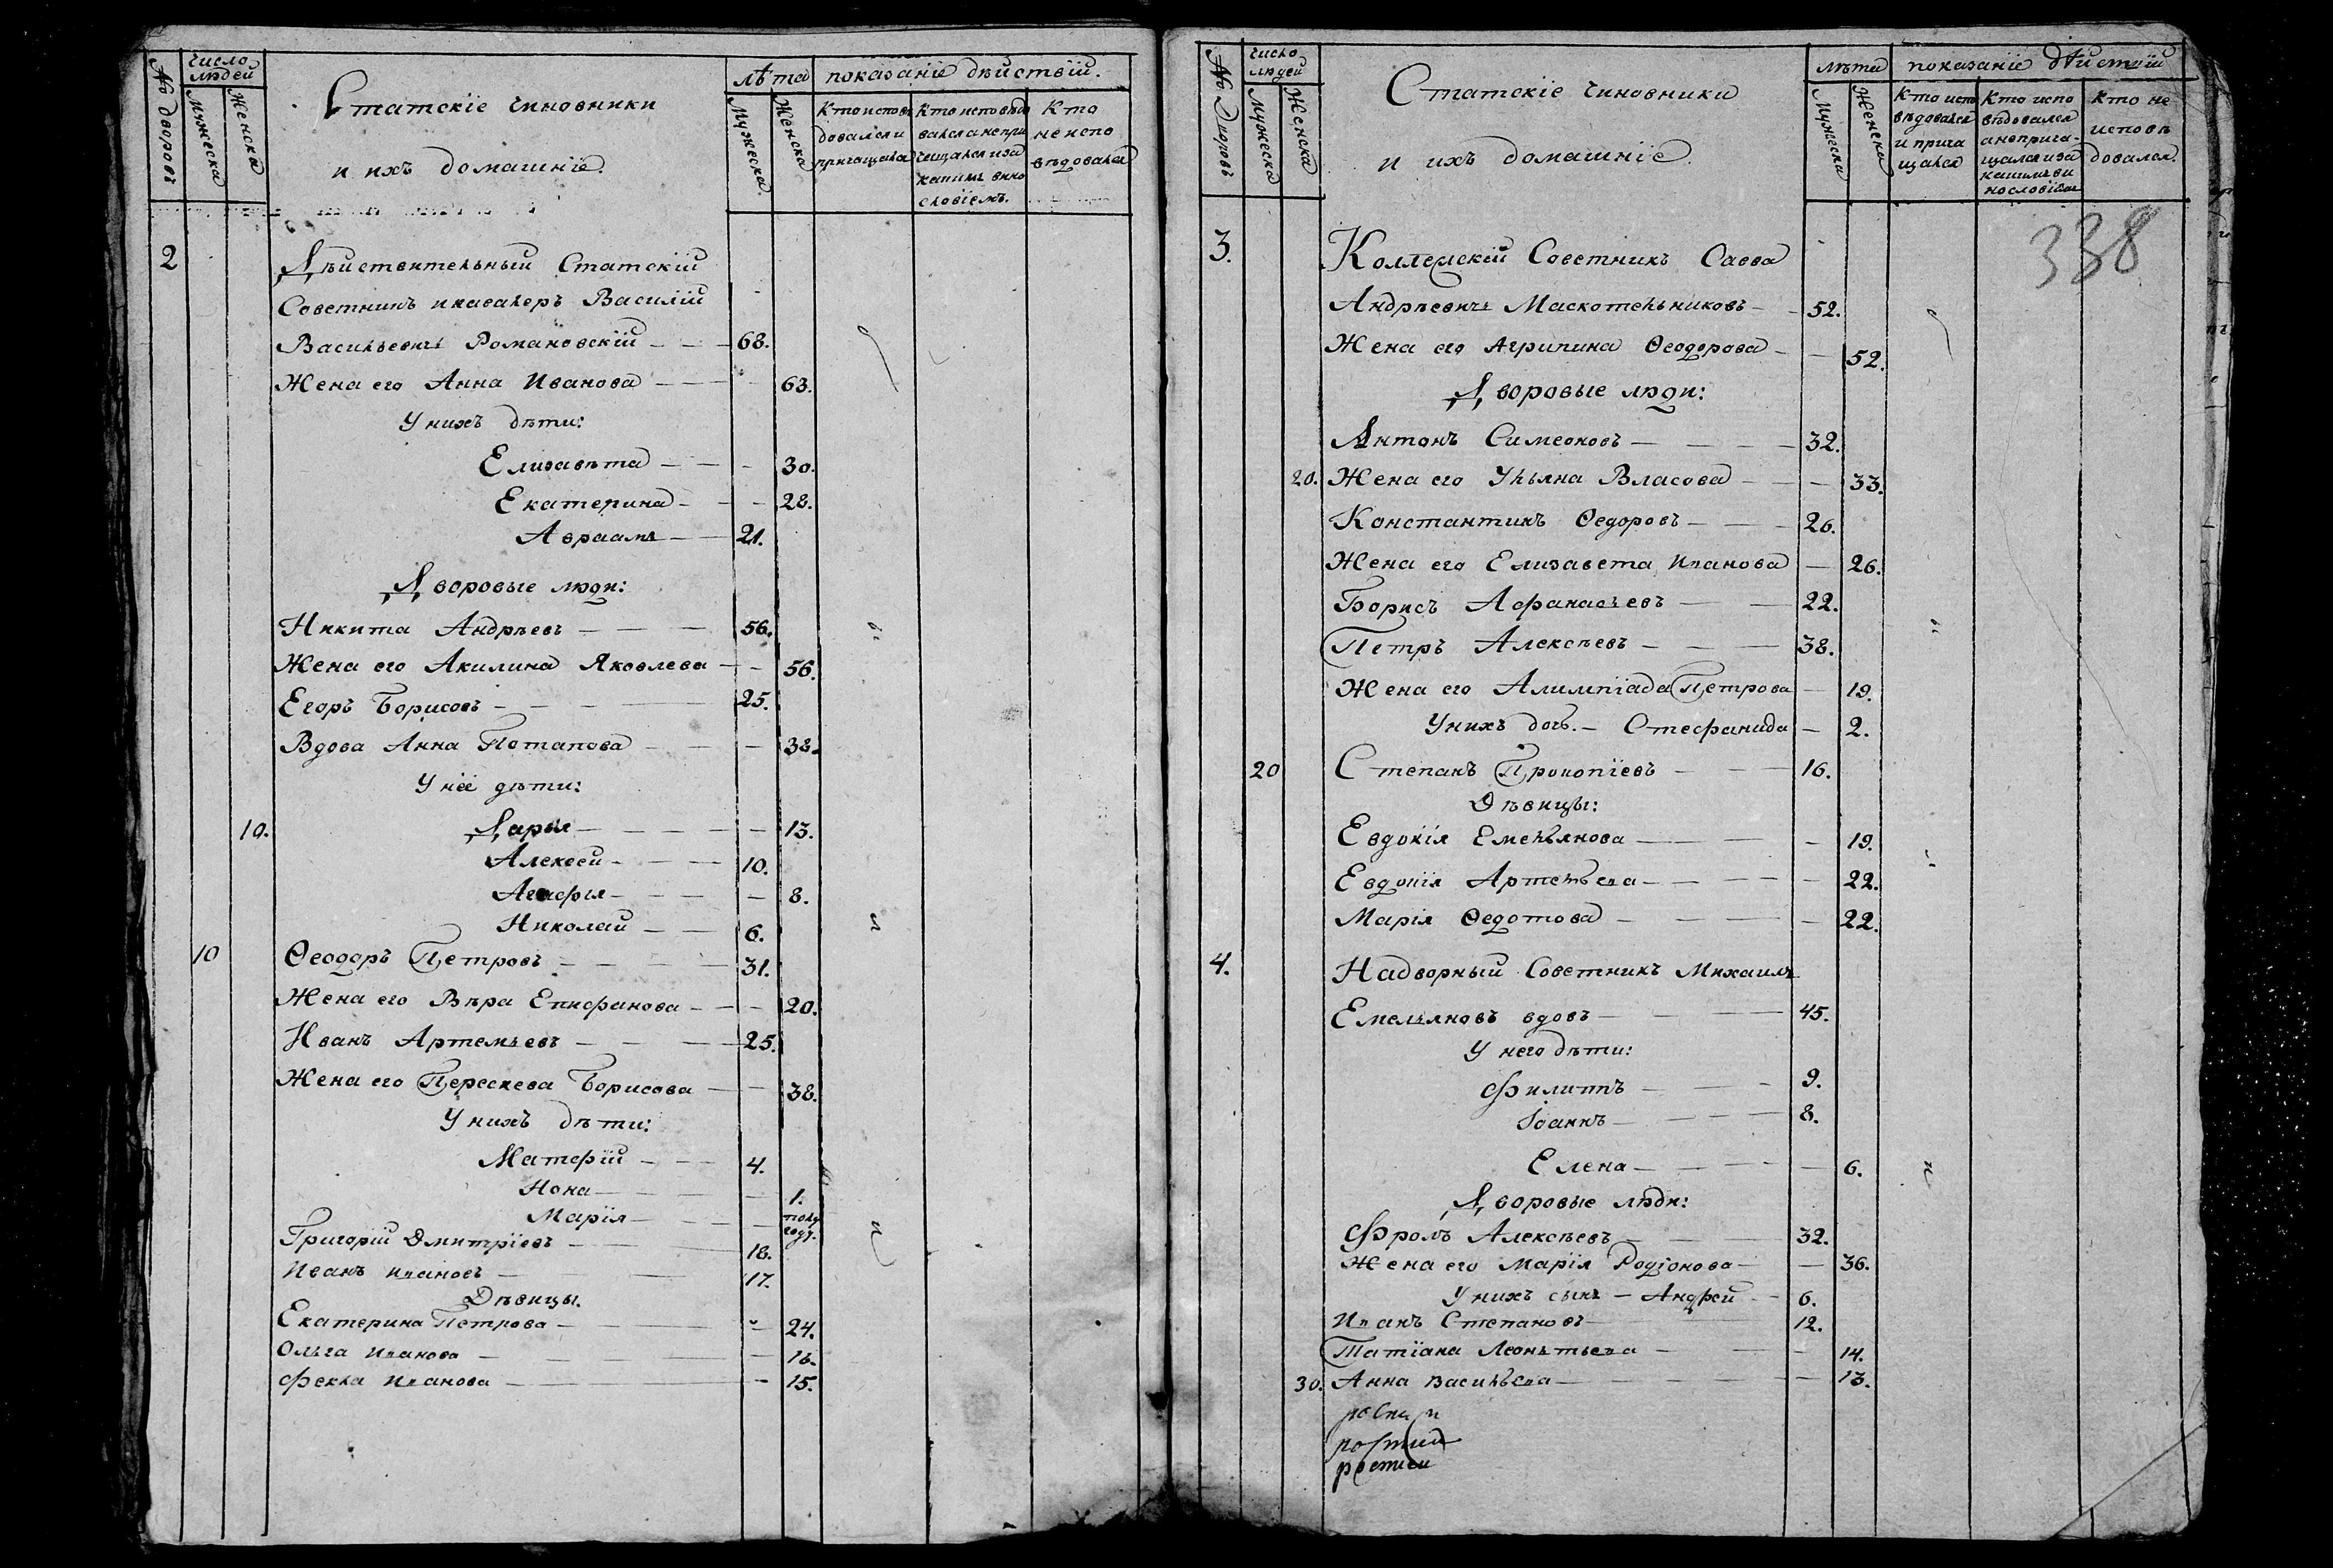 № дворовъ
число людей
Мужеска
Женска
Статскіе чиновники
и ихъ домашніе.
лѣта
Мужеска
Женска
показаніе дѣиствіи.
Кто исповѣ
довался и
причащался
Кто исповѣдо
вался а непри
чищался и за
какимъ вино
словіемъ.
Кто
неиспо
вѣдовался
2
Дѣиствительный Статскій
Советникъ и кавалеръ Василій
Васильевичъ Романовскій - - - 68.
Жена его Анна Иванова - - - 63.
У нихъ дѣти:
Елизавѣта - - - 30.
Екатерина - - - 28.
Авраамъ - - 21.
Дворовые люди:
Никита Андрѣевъ - - - 56.
Жена его Акилина Яковлева - - 56.
Егоръ Борисовъ - - - 25.
Вдова Анна Потапова - - - 38.
У неё дѣти:
10. Дарья - - - - 13.
Алексеи - - - 10.
Агафья - - - - 8.
Николай - - 6.
10 Ѳеодоръ Петровъ - - - 31.
Жена его Вѣра Епифанова - - - 20.
Иванъ Артемьевъ - - - 25.
Жена его Перескева Борисова - - 38.
У нихъ дѣти:
Матерій - - - 4.
Нона - - - 1.
Марія - - - полу
году.
Григорій Дмитріевъ - - - 18.
Иванъ Ивановъ - - - 17.
Дѣвицы.
Екатерина Петрова - - - 24.
Ольга Иванова - - - 16.
Фекла Иванова - - - 15.
№ Дворовъ
число
людей
Мужеска
Женска
Статскіе чиновники
и ихъ домашніе.
лѣта
Мужеска
Женска
показаніе дѣиствіи
Кто испо
вѣдовался
и прича
щался
Кто испо
вѣдовался
а неприча-
щался и за
какимъ ви
нословіемъ
Кто не
исповѣ
довался.
338
3. Коллежскій Советникъ Савва
Андрѣевичъ Маскотельниковъ - - 52.
Жена его Агрипина Ѳеодорова - - 52.
Дворовые люди:
Антонъ Симеоновъ - - - 32.
20. Жена его Ульяна Власова - - - 33.
Константинъ Ѳедоровъ - - - 26.
Жена его Елизавета Иванова - 26.
Борисъ Афанасьевъ - - 22.
Петръ Алексѣевъ - - - 38.
Жена его Алимпіада Петрова - 19.
У нихъ дочь. - Стефанида - 2.
20 Степанъ Прокопіевъ - - - 16.
Дѣвицы:
Евдокія Емельянова - - - 19.
Евдокія Артемьева - - - 22.
Марія Ѳедотова - - - 22.
4. Надворный Советникъ Михаилъ
Емельяновъ вдовъ - - - 45.
У него дѣти:
Филиппъ - - - 9.
Іоаннъ - - - 8.
Елена - - - 6.
Дворовые люди:
Фролъ Алексѣевъ - - - 32.
Жена его Марія Родіонова - - 36.
У нихъ сынъ - Андрей - - 6.
Иванъ Степановъ - - 12.
Татіана Леонтьева - - - 14.
30. Анна Васильева - - - 13.